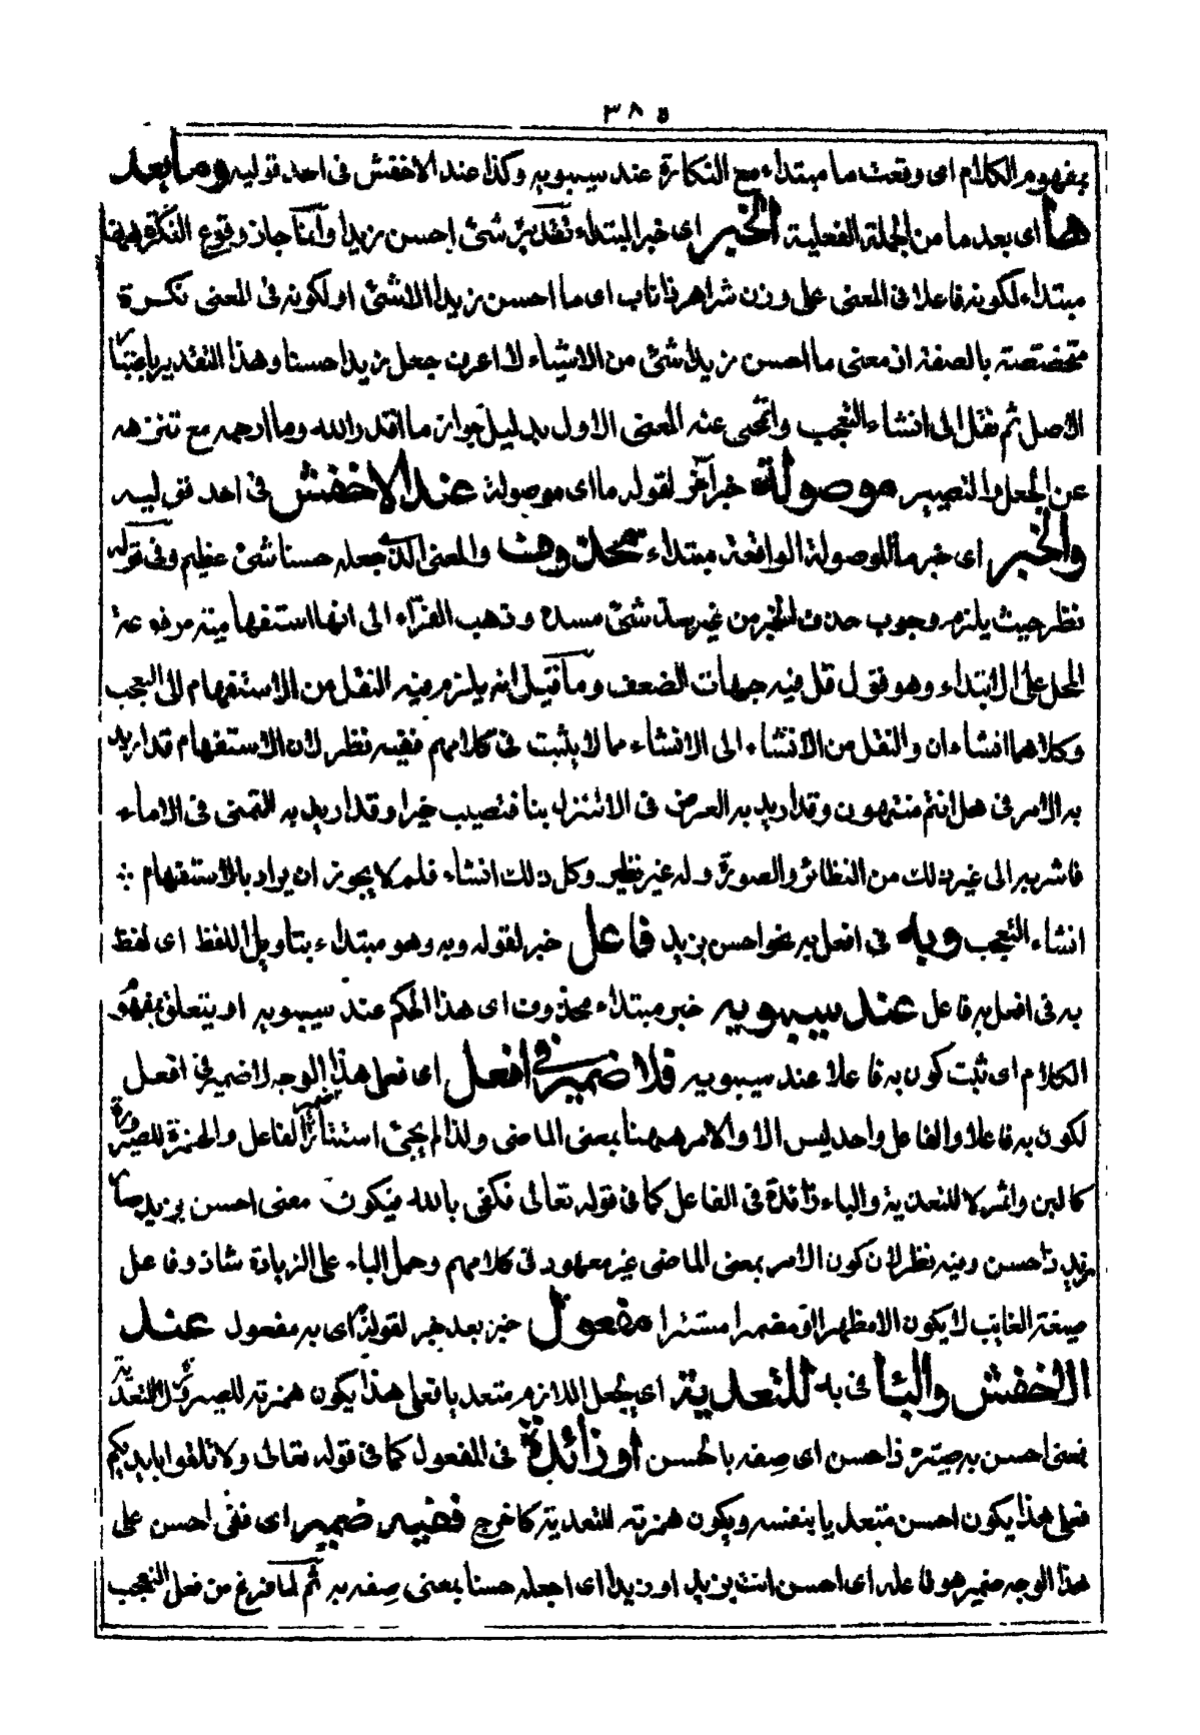 ٣٨٥
بمفهوم الكلام اى وقعت ما مبتداء مع النكارة عند سيبويه وكذا عند الاخفش فى احد قوليه وما بعد
ها اى بعد ما من الجملة الفعلية الخبر اى خبر المبتداء تقديره شئ احسن زيدا وانما جاز وقوع النكرة ههنا
مبتداء لكونه فاعلا فى المعنى على وزن شر اهر ذا ناب اى ما احسن زيدا الا شئ او لكونه فى المعنى نكرة
متخصصة بالصفة اذ معنى ما احسن زيدا شئ من الاشياء لا اعرف جعل زيدا حسنا وهذا التقدير باعتبار
الاصل ثم نقل الى انشاء التعجب وانمحى عنه المعنى الاول بدليل جواز ما اقدر الله وما ارحمه مع تنزهه
عن الجعل والتصيير موصولة خبر آخر لقوله ما اى موصولة عند الاخفش فى احد قوليه
والخبر اى خبر ما الموصولة الواقعة مبتداء محذوف والمعنى الذى جعله حسنا شئ عظيم وفى قوله
نظر حيث يلزم وجوب حذف الخبر من غير سد شئ مسده وذهب الفراء الى انها استفهامية مرفوعة
المحل على الابتداء وهو قول قل فيه جهات الضعف وما قيل انه يلزم فيه النقل من الاستفهام الى التعجب
وكلاهما انشاءان والنقل من الانشاء الى الانشاء مما لا يثبت فى كلامهم ففيه نظر لان الاستفهام قد اريد
به الامر فى هل انتم منتهون وقد اريد به العرض فى الا تنزل بنا فتصيب خيرا وقد اريد به التمنى فى الا ماء
فاشربه الى غير ذلك من النظائر والصورة وله غير نظير وكل ذلك انشاء فلم لا يجوز ان يراد بالاستفهام
انشاء التعجب وبه فى افعل به نحو احسن بزيد فاعل خبر لقوله وبه وهو مبتداء بتاويل اللفظ اى لفظ
به فى افعل به فاعل عند سيبويه خبر مبتداء محذوف اى هذا الحكم عند سيبويه او يتعلق بمفهوم
الكلام اى ثبت كون به فاعلا عند سيبويه فلا ضمير فى افعل اى فعلى هذا الوجه لا ضمير فى افعل
لكون به فاعلا والفاعل واحد ليس الا والامر ههنا بمعنى الماضى ولذا لم يجئ استتار ضمير الفاعل والهمزة للصيرورة
كالبن واثمر لا للتعدية والباء زائدة فى الفاعل كما فى قوله تعالى فكفى بالله فيكون معنى احسن بزيد صار
زيد ذا حسن وفيه نظر لان كون الامر بمعنى الماضى غير معهود فى كلامهم وحمل الباء على الزيادة شاذ وفاعل
صيغة الغايب لا يكون الا مظهرا او مضمرا مستترا مفعول خبر بعد خبر لقوله به اى به مفعول عند
الاخفش والباء فى به للتعدية اى لجعل اللازم متعديا فعلى هذا يكون همزته للصيرورة لا للتعدية
فمعنى احسن به صيره ذا حسن اى صفه بالحسن او زائدة فى المفعول كما فى قوله تعالى ولا تلقوا بايديكم
فعلى هذا يكون احسن متعديا بنفسه ويكون همزته للتعدية كاخرج ففيه ضمير اى ففى احسن على
هذا الوجه ضمير هو فاعله اى احسن انت بزيد او زيدا اى اجعله حسنا بمعنى صفه به ثم لما فرغ من فعل التعجب